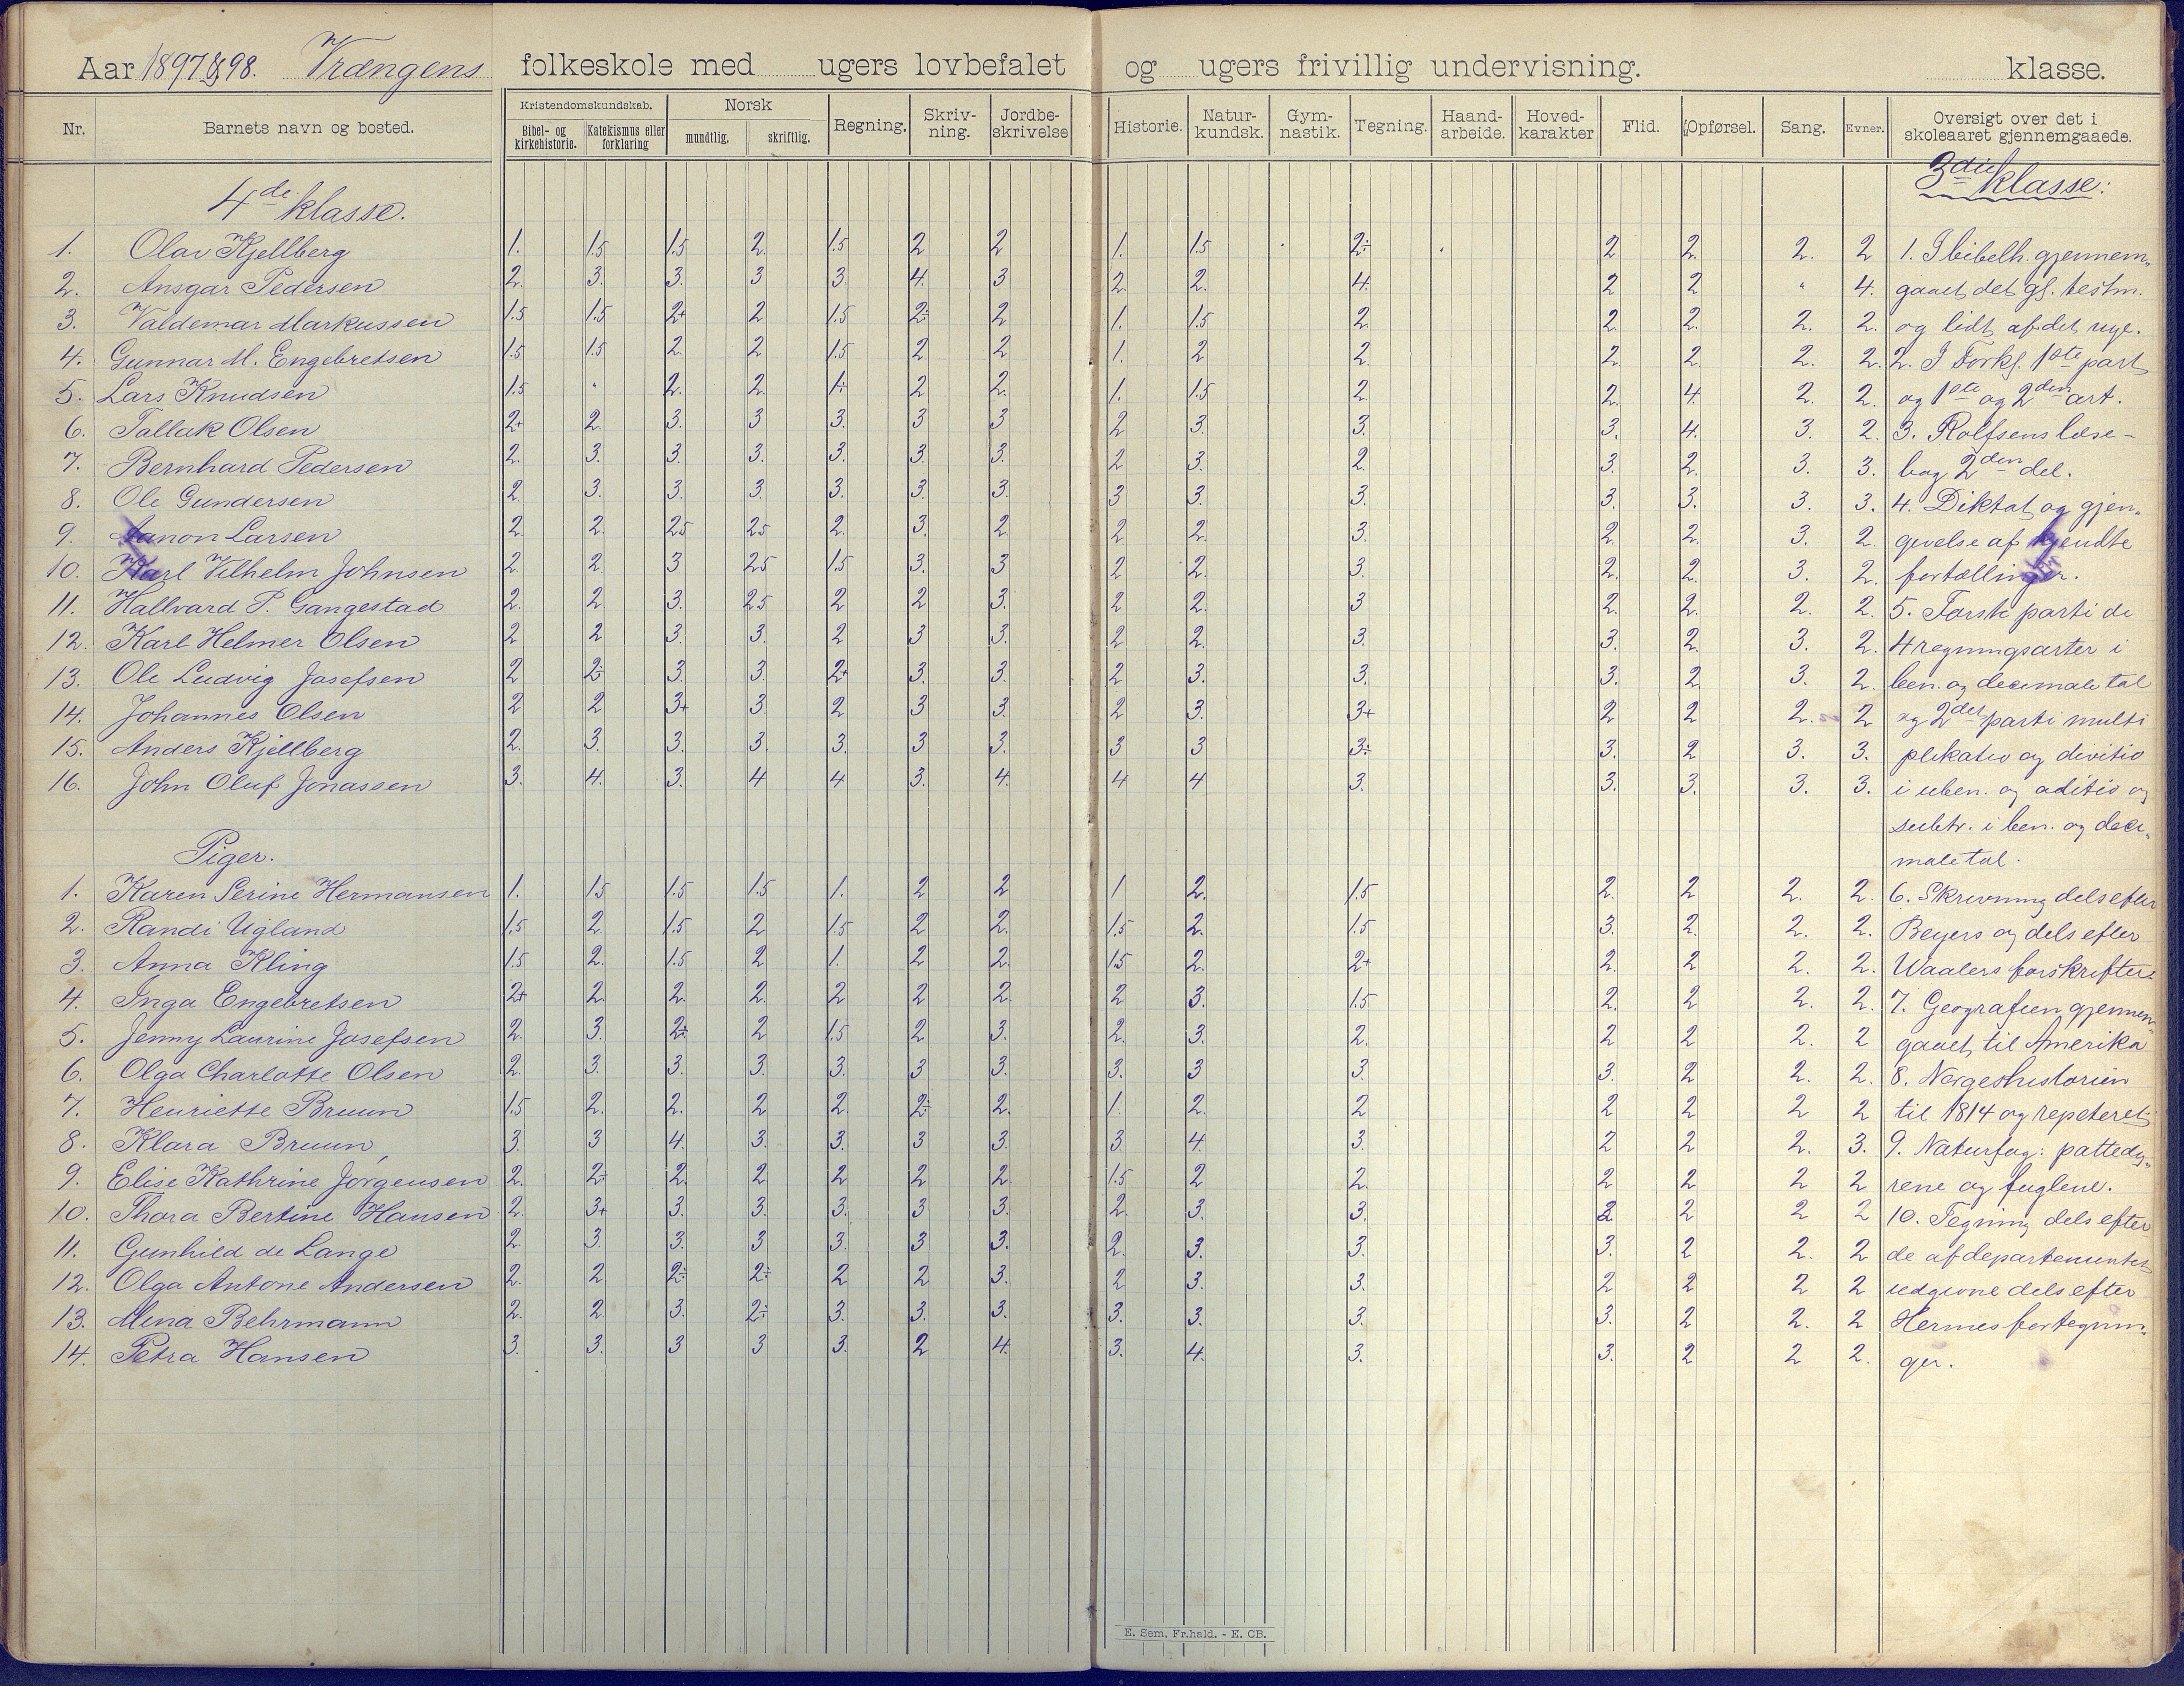 Aar 1897 & 98. Vrængens folkeskole med ugers lovbefalet og ugers frivillig undervisning. klasse.
Nr. Barnets navn og bosted. Kristendomskundskab. Bibel- og kirkehistorie. Katekismus eller forklaring Norsk mundtlig. skriftlig. Regning. Skriv- ning. Jordbe- skrivelse Historie. Natur- kundsk. Gym- nastik. Tegning. Haand- arbeide. Hoved- karakter Flid. Opførsel. Sang. Evner. Oversigt over det i skoleaaret gjennemgaaede.
4de klasse. 3die klasse:
1. Olav Kjellberg 1. 1.5 1.5 2 1.5 2 2 1. 1.5 2÷ 2 2. 2. 2 1. I bibelh. gjennem-
2. Ansgar Pedersen 2. 3. 3. 3 3. 4. 3 2. 2. 4. 2 2 " 4. gaaet det gl. testm.
3. Valdemar Markussen 1.5 1.5 2+ 2 1.5 2÷ 2 1. 1.5 2. 2. 2. 2. 2. og lidt af det nye.
4. Gunnar M. Engebretsen 1.5 1.5 2. 2 1.5 2 2 1. 2 2. 2. 2. 2. 2. 2. I Forkl. 1ste part
5. Lars Knudsen 1.5 " 2. 2. 1÷ 2 2. 1. 1.5 2. 2. 4. 2. 2. og 1ste og 2den art.
6. Tallak Olsen 2+ 2. 3. 3 3. 3 3 2 3. 3. 3. 4. 3. 2. 3. Rolfsens læse-
7. Bernhard Pedersen 2. 3. 3. 3. 3. 3. 3. 2 3. 2. 3. 2. 3. 3. bog 2den del.
8. Ole Gundersen 2. 3. 3. 3. 3. 3. 3. 3 3. 3. 3. 3. 3. 3. 4. Diktat og gjen-
9. Aanon Larsen 2. 2. 2.5 2.5 2. 3. 2 2 2. 3. 2. 2. 3. 2. givelse af kjendte
10. Karl Vilhelm Johnsen 2. 2 3 2.5 1.5 3. 3 2 2. 3. 2. 2. 3. 2. fortællinger.
11. Hallvard P. Gangestad 2. 2 3. 2.5 2 2 3. 2 2. 3 2. 2. 2. 2. 5. Første parti de
12. Karl Helmer Olsen 2 2 3. 3. 2 3 3. 2 2. 3. 3. 2. 3. 2. 4 regningsarter i
13. Ole Ludvig Josefsen 2 2÷ 3. 3. 2+ 3. 3. 2 3. 3. 3. 2. 3. 2. ben. og decimale tal
14. Johannes Olsen 2 2 3+ 3. 2 3 3. 2 3. 3+ 2 2 2. 2 og 2det parti multi
15. Anders Kjellberg 2. 3. 3. 3. 3. 3 3. 3 3 3÷ 3. 2 3. 3. plikatio og divitio
16. John Oluf Jonassen 3. 4. 3. 4 4 3. 4. 4 4 3. 3. 3. 3. 3. i uben. og aditio og
subtr. i ben. og deci-
Piger. male tal.
1. Karen Serine Hermansen 1. 1.5 1.5 1.5 1. 2 2 1 2. 1.5 2. 2 2. 2. 6. Skrivning dels efter
2. Randi Ugland 1.5 2. 1.5 2 1.5 2 2. 1.5 2. 1.5 3. 2. 2. 2. Beyers og dels efter
3. Anna Kling 1.5 2. 1.5 2 1. 2 2. 1.5 2. 2+ 2. 2 2. 2. Waalers forskrifter.
4. Inga Engebretsen 2+ 2. 2. 2. 2 2 2. 2 3. 1.5 2. 2 2. 2. 7. Geografien gjennem-
5. Jenny Laurine Josefsen 2. 3. 2÷ 2 1.5 2 3. 2. 3. 2. 2 2 2. 2 gaaet til Amerika
6. Olga Charlotte Olsen 2. 3. 3. 3. 3. 3 3. 3. 3 3. 3. 2 2. 2. 8. Norgeshistorien
7. Henriette Bruun 1.5 2. 2. 2 2. 2÷ 2. 1. 2. 2 2 2 2 2 til 1814 og repeteret.
8. Klara Bruun 3. 3 4. 3. 3. 3 3. 3. 4. 3. 2 2 2. 3. 9. Naturfag: pattedy-
9. Elise Kathrine Jørgensen 2. 2÷ 2. 2 2 2 2. 1.5 2 2. 2 2 2 2 rene og fuglene.
10. Thora Bertine Hansen 2. 3+ 3. 3. 3. 3 3. 2. 3. 3. 2 2 2 2 10. Tegning dels efter
11. Gunhild de Lange 2. 3. 3. 3 3. 3 3. 2. 3. 3. 3. 2 2. 2 de af departementet
12. Olga Antone Andersen 2. 2 2÷ 2÷ 2 2 3. 2 3. 3. 2 2 2 2 udgivne dels efter
13. Mina Behrmann 2. 2. 3. 2÷ 3. 3. 3. 3. 3. 3. 3. 2 2. 2 Hermes fortegnin-
14. Petra Hansen 3. 3. 3 3 3. 2 4. 3. 4. 3. 3. 2 2 2. ger.
E. Sem, Fr.hald. - E. CB.